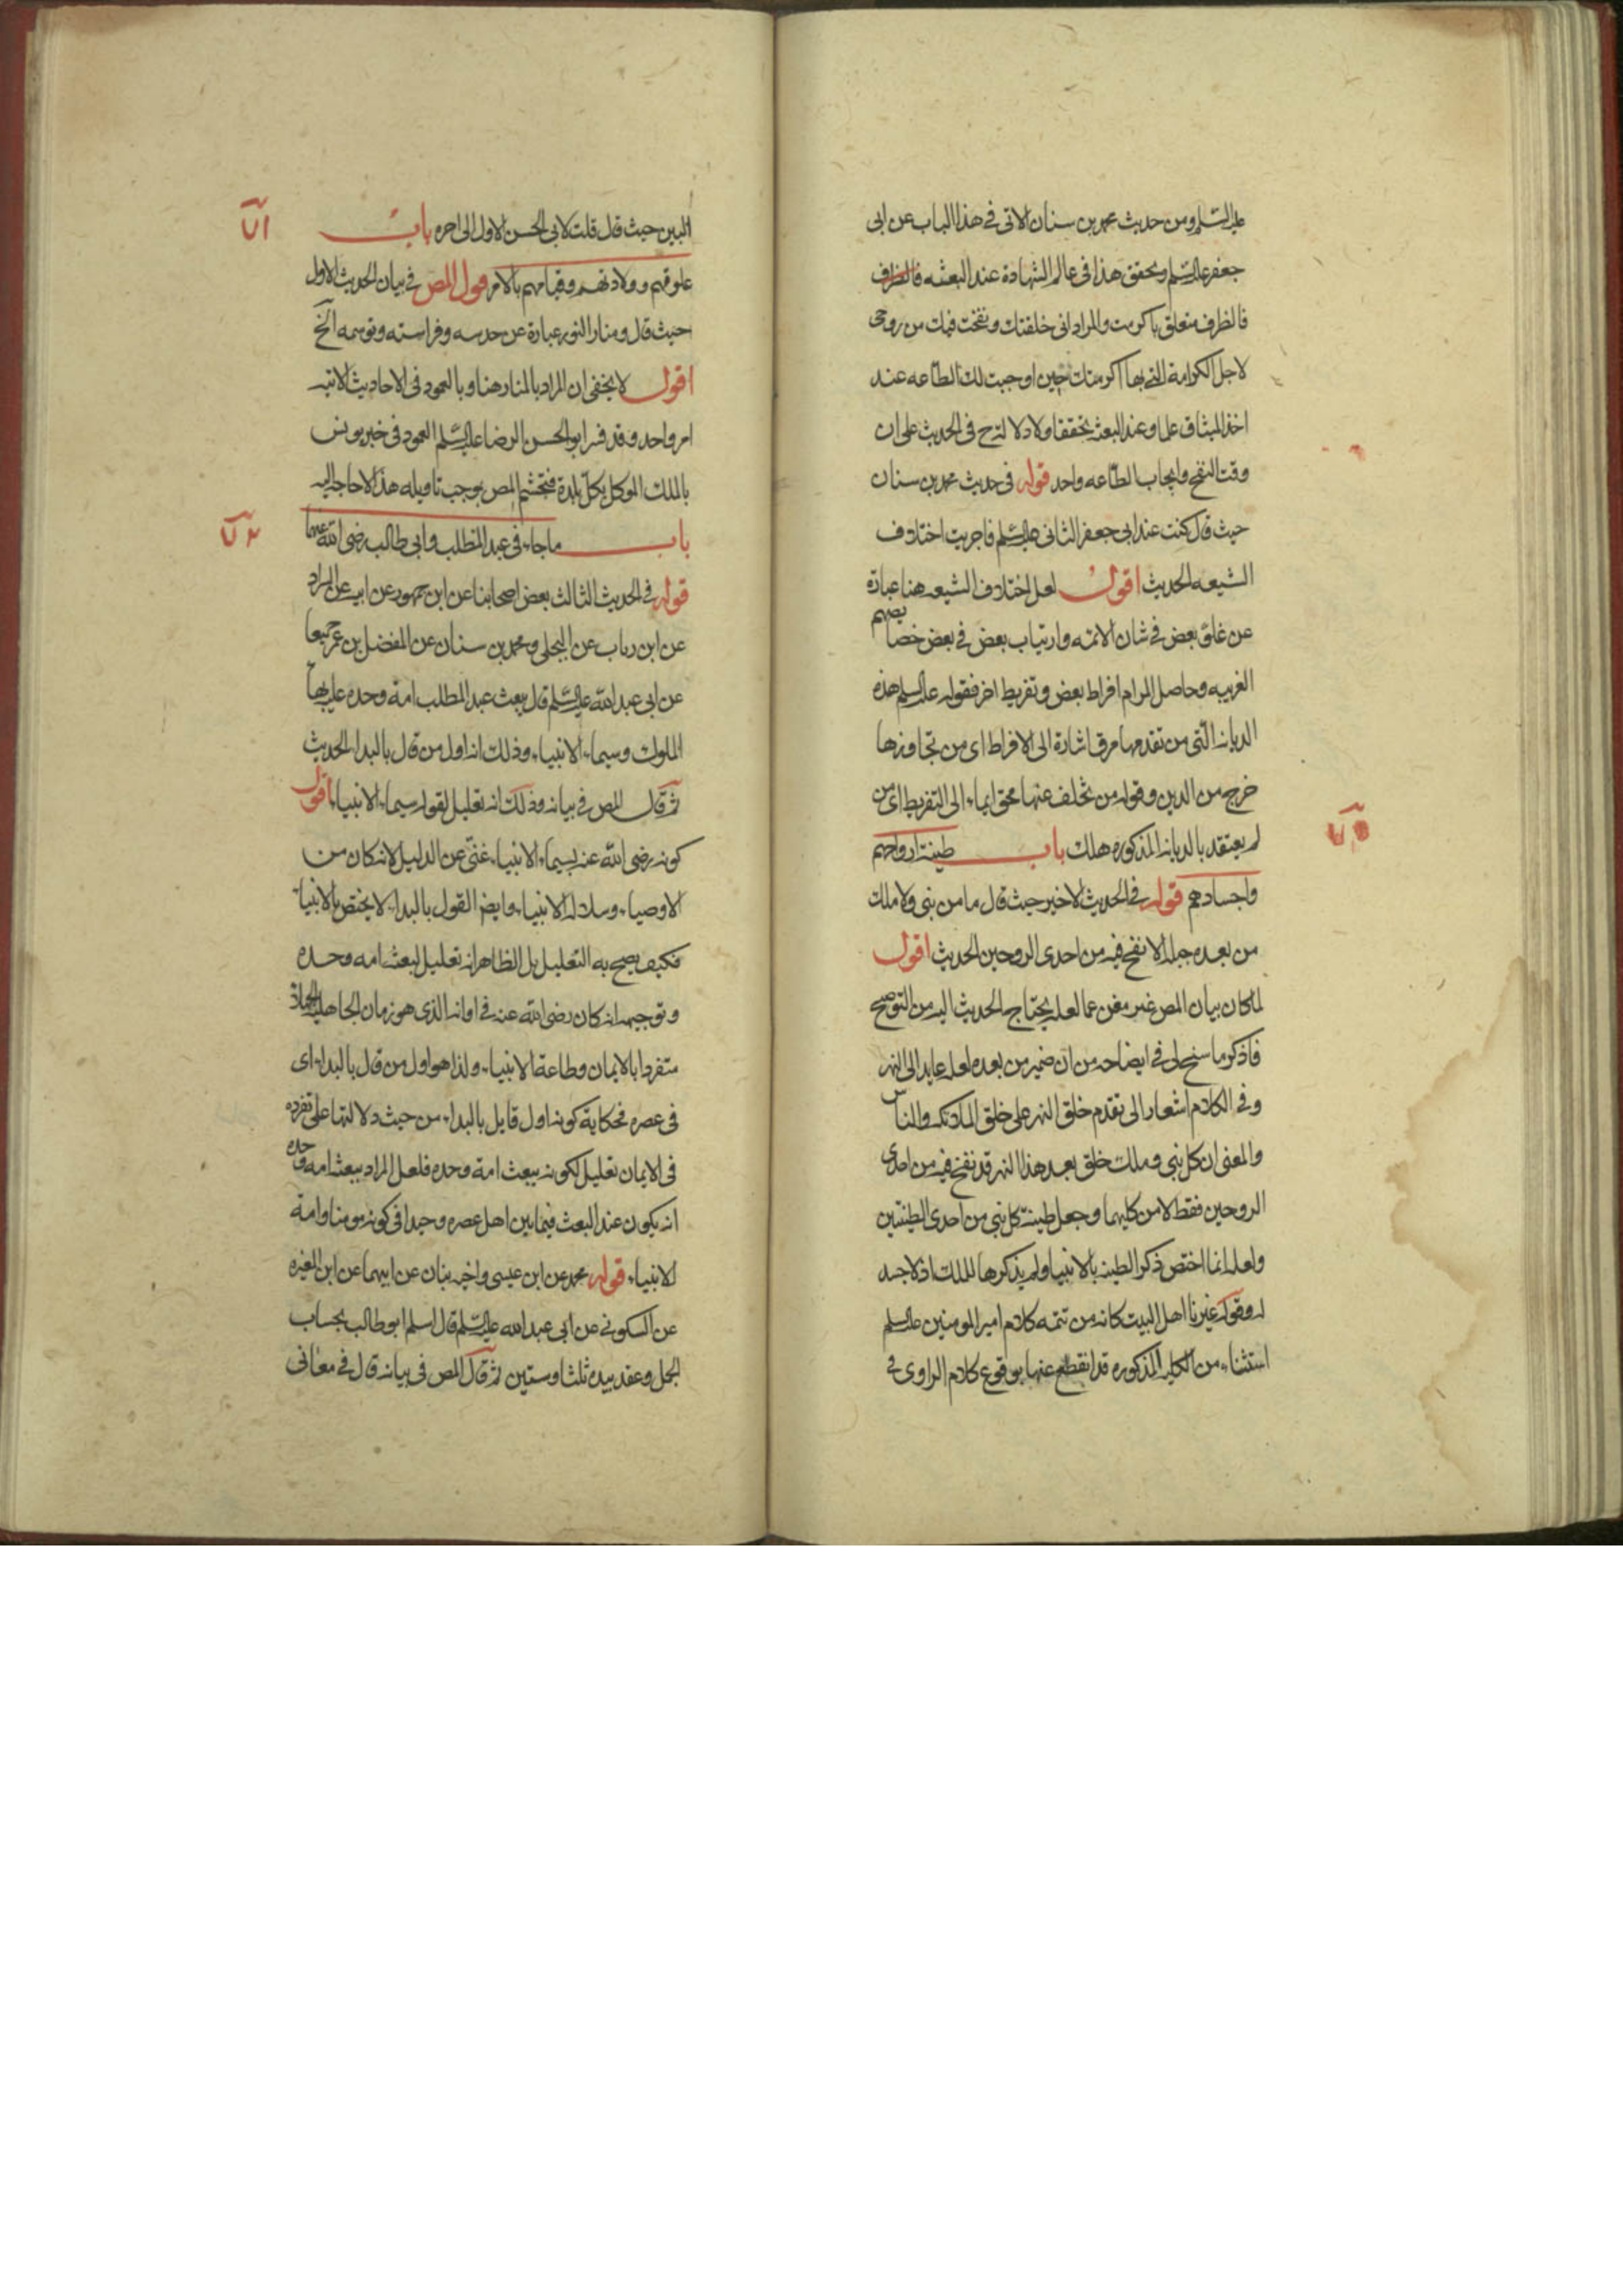 عليه السلم ومن حديث محمد بن سنان الاتى فى هذا الباب عن ابى
جعفر عليه السلم وتحقق هذا فى عالم الشهادة عند البعثه فالظرف
فالظرف متعلق باكرمت والمراد انى خلقتك ونفخت فيك من روحى
لاجل الكرامة التى بها اكرمتك حين اوجبت لك الطاعه عند
اخذ الميثاق علما وعند البعث تحققا ولا دلالة ح فى الحديث على ان
وقت النفخ وايجاب الطاعه واحد قوله فى حديث محمد بن سنان
حيث قال كنت عند ابى جعفر الثانى عليه السلم فاجريت اختلاف
الشيعه الحديث اقول لعل اختلاف الشيعه هنا عبارة
عن غلو بعض فى شان الائمه وارتياب بعض فى بعض خصايصهم
الغريبه وحاصل المرام افراط بعض وتفريط اخر فقوله عليه السلم هذه
الديانه التى من تقدمها مرق اشارة الى الافراط اى من تجاوزها
خرج من الدين وقوله من تخلف عنها محق ايماء الى التفريط اى من
لم يعتقد بالديانه المذكوره هلك باب طينة ارواحهم
واجسادهم قوله فى الحديث الاخير حيث قال ما من نبى ولا ملك
من بعده جبله الا نفخ فيه من احدى الروحين الحديث اقول
لما كان بيان المص غير مغن عما لعله يحتاج الحديث اليه من التوضيح
فاذكر ما سنح لى فى ايضاحه من ان ضمير من بعده لعله عايد الى النهر
وفى الكلام اشعار الى تقدم خلق النهر على خلق الملائكه والناس
والمعنى ان كل نبى وملك خلق بعد هذا النهر قد نفخ فيه من احدى
الروحين فقط لا من كليهما وجعل طينة كل نبى من احدى الطينتين
ولعله انما اختص ذكر الطينه بالانبيا ولم يذكرها للملك اذ لا جسد
له وقوله غيرنا اهل البيت كانه من تتمه كلام امير المومنين عليه السلم
استثناء من الكليه المذكوره قد انقطع عنها بوقوع كلام الراوى فى
البين حيث قال قلت لابى الحسن الاول الى اخره باب
علوقهم وولادتهم وقيامهم بالامر قول المص فى بيان الحديث الاول
حيث قال ومنار النور عبارة عن حدسه وفراسته وتوسمه الخ
اقول لا يخفى ان المراد بالمنار هنا وبالعمود فى الاحاديث الاتيه
امر واحد وقد فسر ابو الحسن الرضا عليه السلم العمود فى خبر يونس
بالملك الموكل بكل بلدة فتجشم المص بوجب تاويله هذا لا حاجة اليه
باب ما جاء فى عبد المطلب وابى طالب رضى الله عنهما
قوله فى الحديث الثالث بعض اصحابنا عن ابن جمهور عن ابيه عن السراد
عن ابن رياب عن البجلى ومحمد بن سنان عن المفضل بن عمر جميعا
عن ابى عبد الله عليه السلم قال يبعث عبد المطلب امة وحده عليه بهاء
الملوك وسيماء الانبياء وذلك انه اول من قال بالبدا الحديث
ثم قال المص فى بيانه وذلك انه تعليل لقوله سيماء الانبياء اقول
كونه رضى الله عنه بسيماء الانبياء غنى عن الدليل لانه كان من
الاوصياء وسلاله الانبياء وايضا القول بالبداء لا يختص بالانبياء
فكيف يصح به التعليل بل الظاهر انه تعليل لبعثه امه وحده
وتوجيهه انه كان رضى الله عنه فى اوانه الذى هو زمان الجاهليه
متفردا بالايمان وطاعة الانبياء ولذا هو اول من قال بالبداء اى
فى عصره فحكاية كونه اول قايل بالبداء من حيث دلالتها على تفرده
فى الايمان تعليل لكونه يبعث امة وحده فلعل المراد ببعثه امه وحده
انه يكون عند البعث فيما بين اهل عصره وحيدا فى كونه مومنا وامة
الانبياء قوله محمد عن ابن عيسى واخيه بنان عن ابيهما عن ابن المغيره
عن السكونى عن ابى عبد الله عليه السلم قال اسلم ابو طالب بحساب
الجمل وعقد بيده ثلثا وستين ثم قال المص فى بيانه قال فى معانى